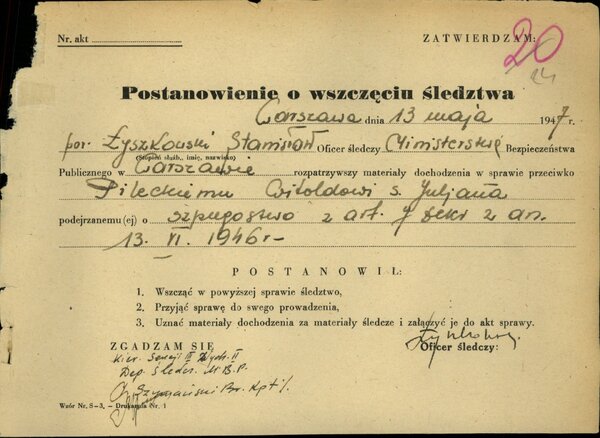 Nr. akt
ZATWIERDZAM:
20
24
Postanowienie o wszczęciu śledztwa
Warszawa dnia 13 maja 1947 r.
por. Łyszkowski Stanisław Oficer śledczy Ministerstwa Bezpieczeństwa
(Stopień służb., imię, nazwisko)
Publicznego w Warszawie rozpatrzywszy materiały dochodzenia w sprawie przeciwko
Pileckiemu Witoldowi s. Juljana
podejrzanemu(ej) o szpiegostwo z art. 7 dekr z dn.
13. VI. 1946 r-
POSTANOWIŁ:
1. Wszcząć w powyższej sprawie śledztwo,
2. Przyjąć sprawę do swego prowadzenia,
3. Uznać materiały dochodzenia za materiały śledcze i załączyć je do akt sprawy.
ZGADZAM SIĘ
Kier. Sekcji II Wydz. II
Dep. Śledcz. M.B.P.
Szymański kpt.
Oficer śledczy:
Wzór Nr. S-3. - Drukarnia Nr. 1